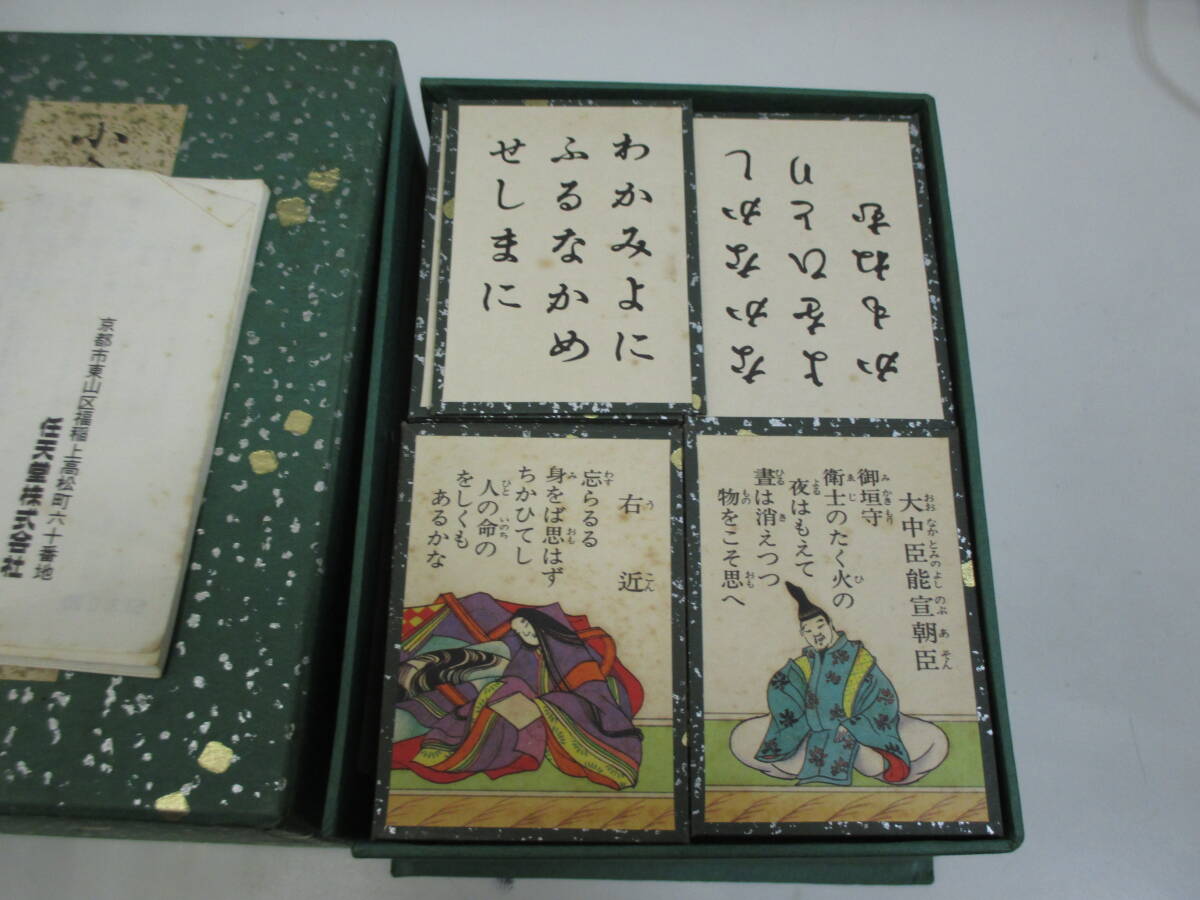 小
京都市東山区福稲上高松町六十番地
任天堂株式会社
わかみよに
ふるなかめ
せしまに
なかなかし
よをひとり
かもねむ
右近
忘らるる
身をば思はず
ちかひてし
人の命の
をしくも
あるかな
大中臣能宣朝臣
御垣守
衛士のたく火の
夜はもえて
晝は消えつつ
物をこそ思へ